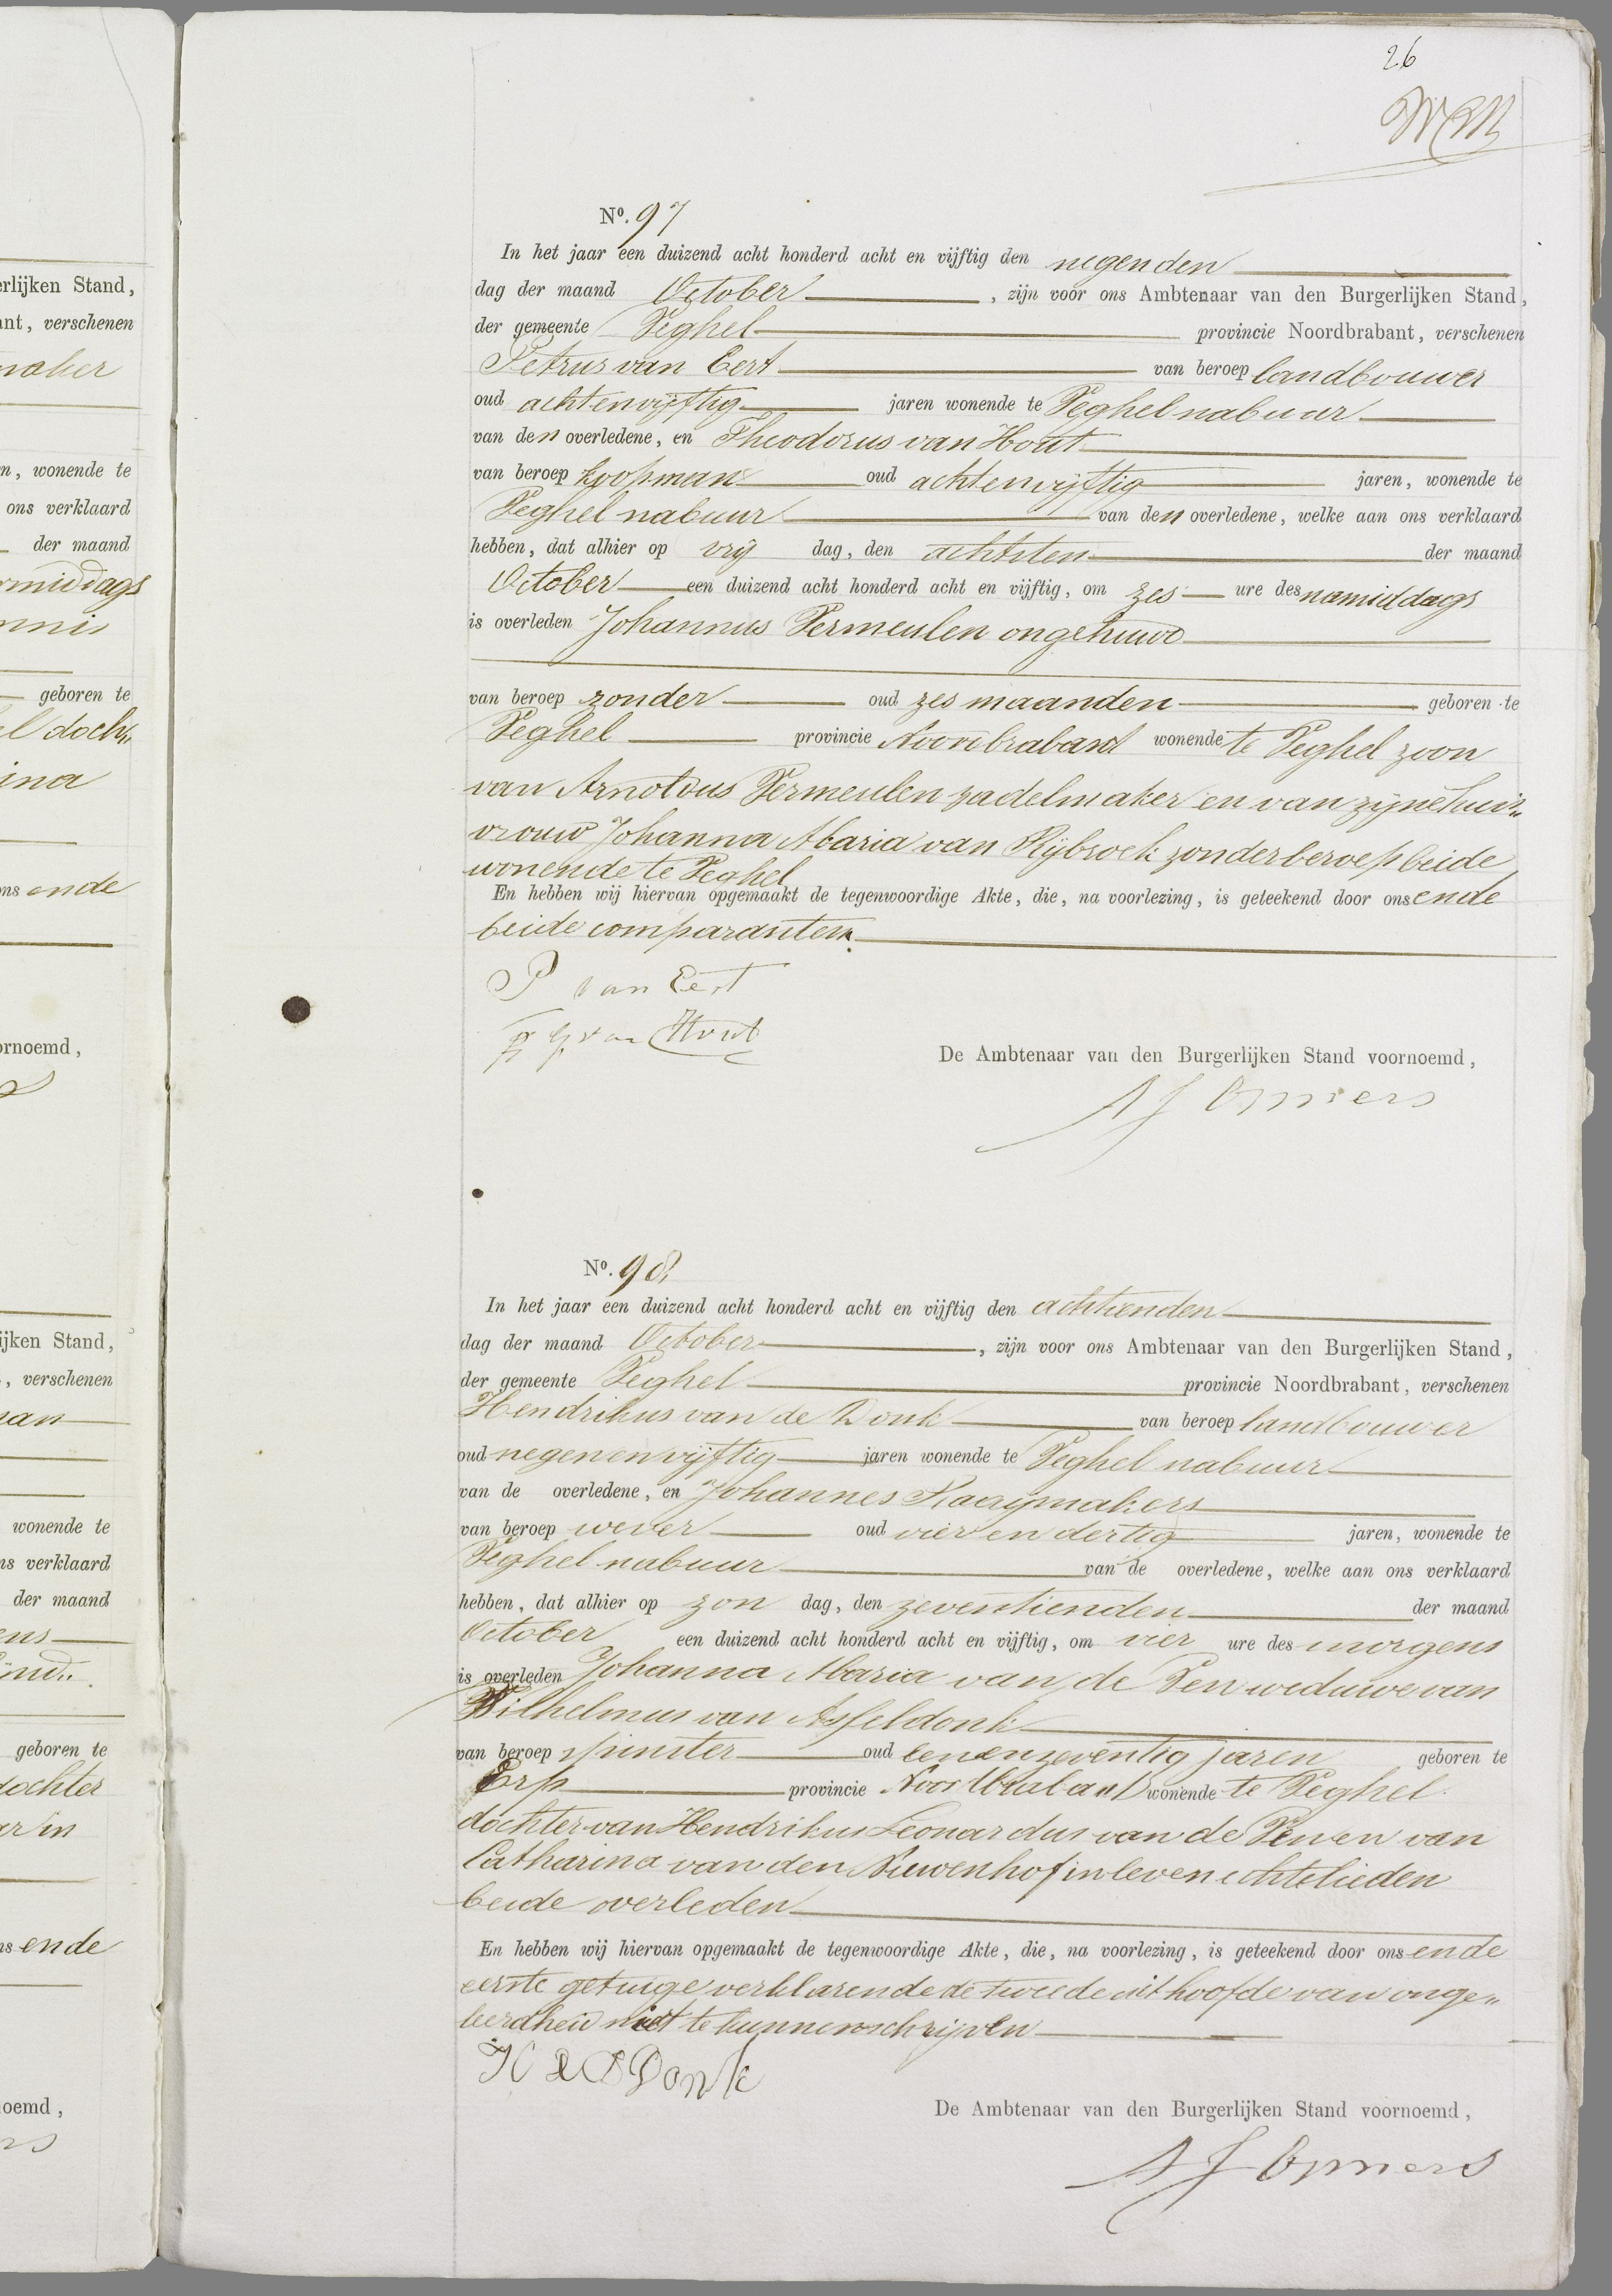 26
No. 97
In het jaar een duizend acht honderd acht en vijftig den negenden
dag der maand October, zijn voor ons Ambtenaar van den Burgerlijken Stand,
der gemeente Veghel provincie Noordbrabant, verschenen
Petrus van Eert van beroep landbouwer
oud achtenvijftig jaren wonende te Veghel nabuur
van den overledene, en Theodorus van Hout
van beroep koopman oud achtenvijftig jaren, wonende te
Veghel nabuur van den overledene, welke aan ons verklaard
hebben, dat alhier op vrij dag, den achtsten der maand
October een duizend acht honderd acht en vijftig, om zes ure des namiddags
is overleden Johannus Vermeulen ongehuwd
van beroep zonder oud zes maanden geboren te
Veghel provincie Noordbrabant wonende te Veghel zoon
van Arnoldus Vermeulen zadelmaker en van zijne huis„
vrouw Johanna Maria van Rijbroek zonder beroep beide
wonende te Veghel
En hebben wij hiervan opgemaakt de tegenwoordige Akte, die, na voorlezing, is geteekend door ons en de
beide comparanten.
P van Eert
van Hout
De Ambtenaar van den Burgerlijken Stand voornoemd,
No. 98
In het jaar een duizend acht honderd acht en vijftig den achtienden
dag der maand October, zijn voor ons Ambtenaar van den Burgerlijken Stand,
der gemeente Veghel provincie Noordbrabant, verschenen
Hendrikus van de Donk van beroep landbouwer
oud negenenvijftig jaren wonende te Veghel nabuur
van de overledene, en Johannes Raaijmakers
van beroep wever oud vier en dertig jaren, wonende te
Veghel nabuur van de overledene, welke aan ons verklaard
hebben, dat alhier op zon dag, den zeventienden der maand
October een duizend acht honderd acht en vijftig, om vier ure des morgens
is overleden Johanna Maria van de Ven weduwe van
Wilhelmus van Asseldonk
van beroep spinster oud eenenzeventig jaren geboren te
Erp provincie Noordbrabant wonende te Veghel
dochter van Hendrikus Leonardus van de Ven en van
Catharina van den Nieuwenhof in leven echtelieden
beide overleden
En hebben wij hiervan opgemaakt de tegenwoordige Akte, die, na voorlezing, is geteekend door ons en de
eerste getuige verklarende de tweede uit hoofde van onge„
leerdheid niet te kunnen schrijven
Donk
De Ambtenaar van den Burgerlijken Stand voornoemd,